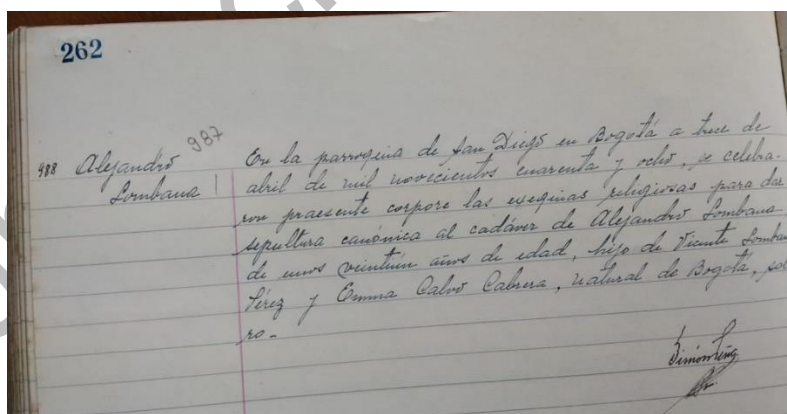 262
987
988 Alejandro
Lombana
En la parroquia de San Diego en Bogotá a trece de
abril de mil novecientos cuarenta y ocho, se celebra-
ron praesente corpore las exequias religiosas para dar
sepultura canónica al cadáver de Alejandro Lombana
de unos veintiún años de edad, hijo de Vicente Lomba
Pérez y Emma Calvo Cabrera, natural de Bogotá, sol
ro-